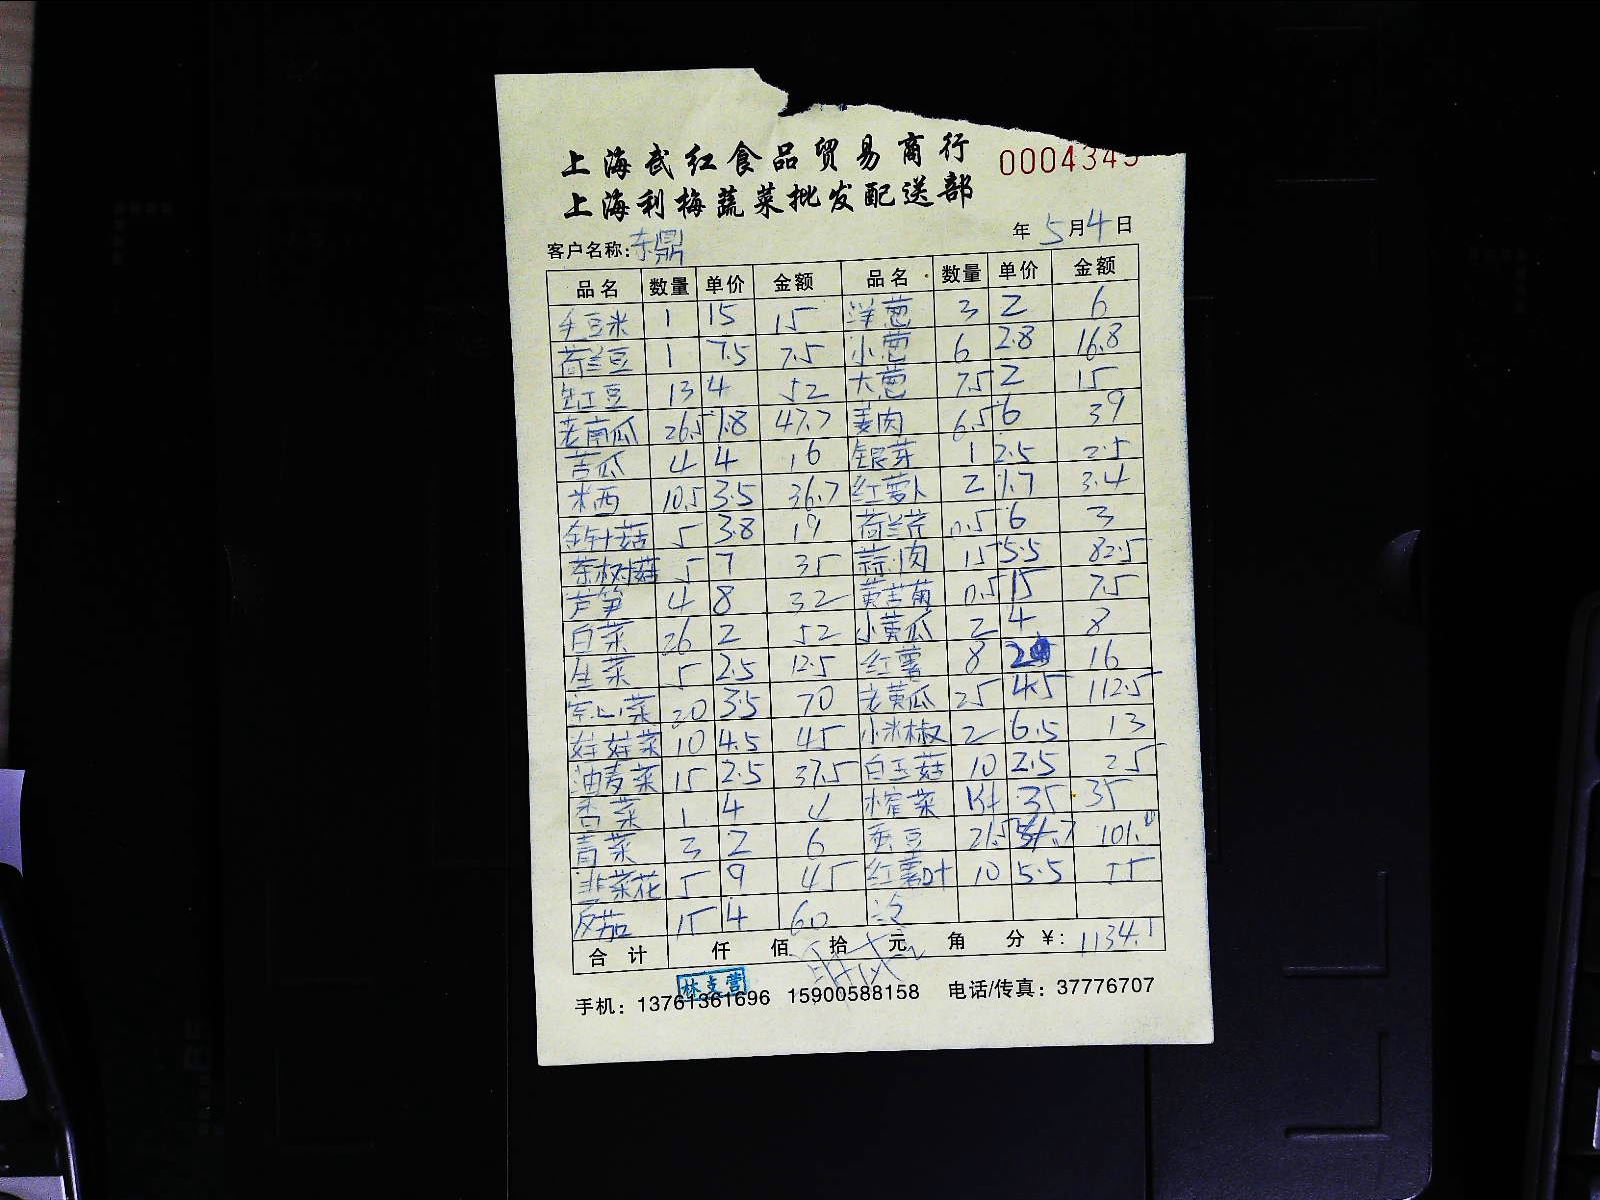 上海武红食品贸易商行
上海利梅蔬菜批发配送部
客户名称:东鼎 年5月4日
品名 数量 单价 金额 品名 数量 单价 金额
毛豆米 1 15 15 洋葱 3 2 6
荷兰豆 1 7.5 7.5 小葱 6 2.8 16.8
缸豆 13 4 52 大葱 7.5 2 15
老南瓜 26.5 1.8 47.7 姜肉 6.5 6 39
苦瓜 4 4 16 银芽 1 2.5 2.5
米西 10.5 3.5 36.7 红萝卜 2 1.7 3.4
金针菇 5 3.8 19 荷兰芹 0.5 6 3
茶树菇 5 7 35 蒜肉 15 5.5 82.5
芦笋 4 8 32 0.5 15 7.5
白菜 26 2 52 小黄瓜 2 4 8
生菜 5 2.5 12.5 红薯 8 2 16
空心菜 20 3.5 70 老黄瓜 25 4.5 112.5
娃娃菜 10 4.5 45 小米椒 2 6.5 13
油麦菜 15 2.5 37.5 白玉菇 10 2.5 25
香菜 1 4 4 榨菜 35 35
青菜 3 2 6 蚕豆 21.5
韭菜花 5 9 45 红薯叶 10 5.5 55
反茄 15 4 60
合计 仟 佰 拾 元 角 分 ¥: 1134.1
林支营
手机: 13761361696 15900588158 电话/传真: 37776707